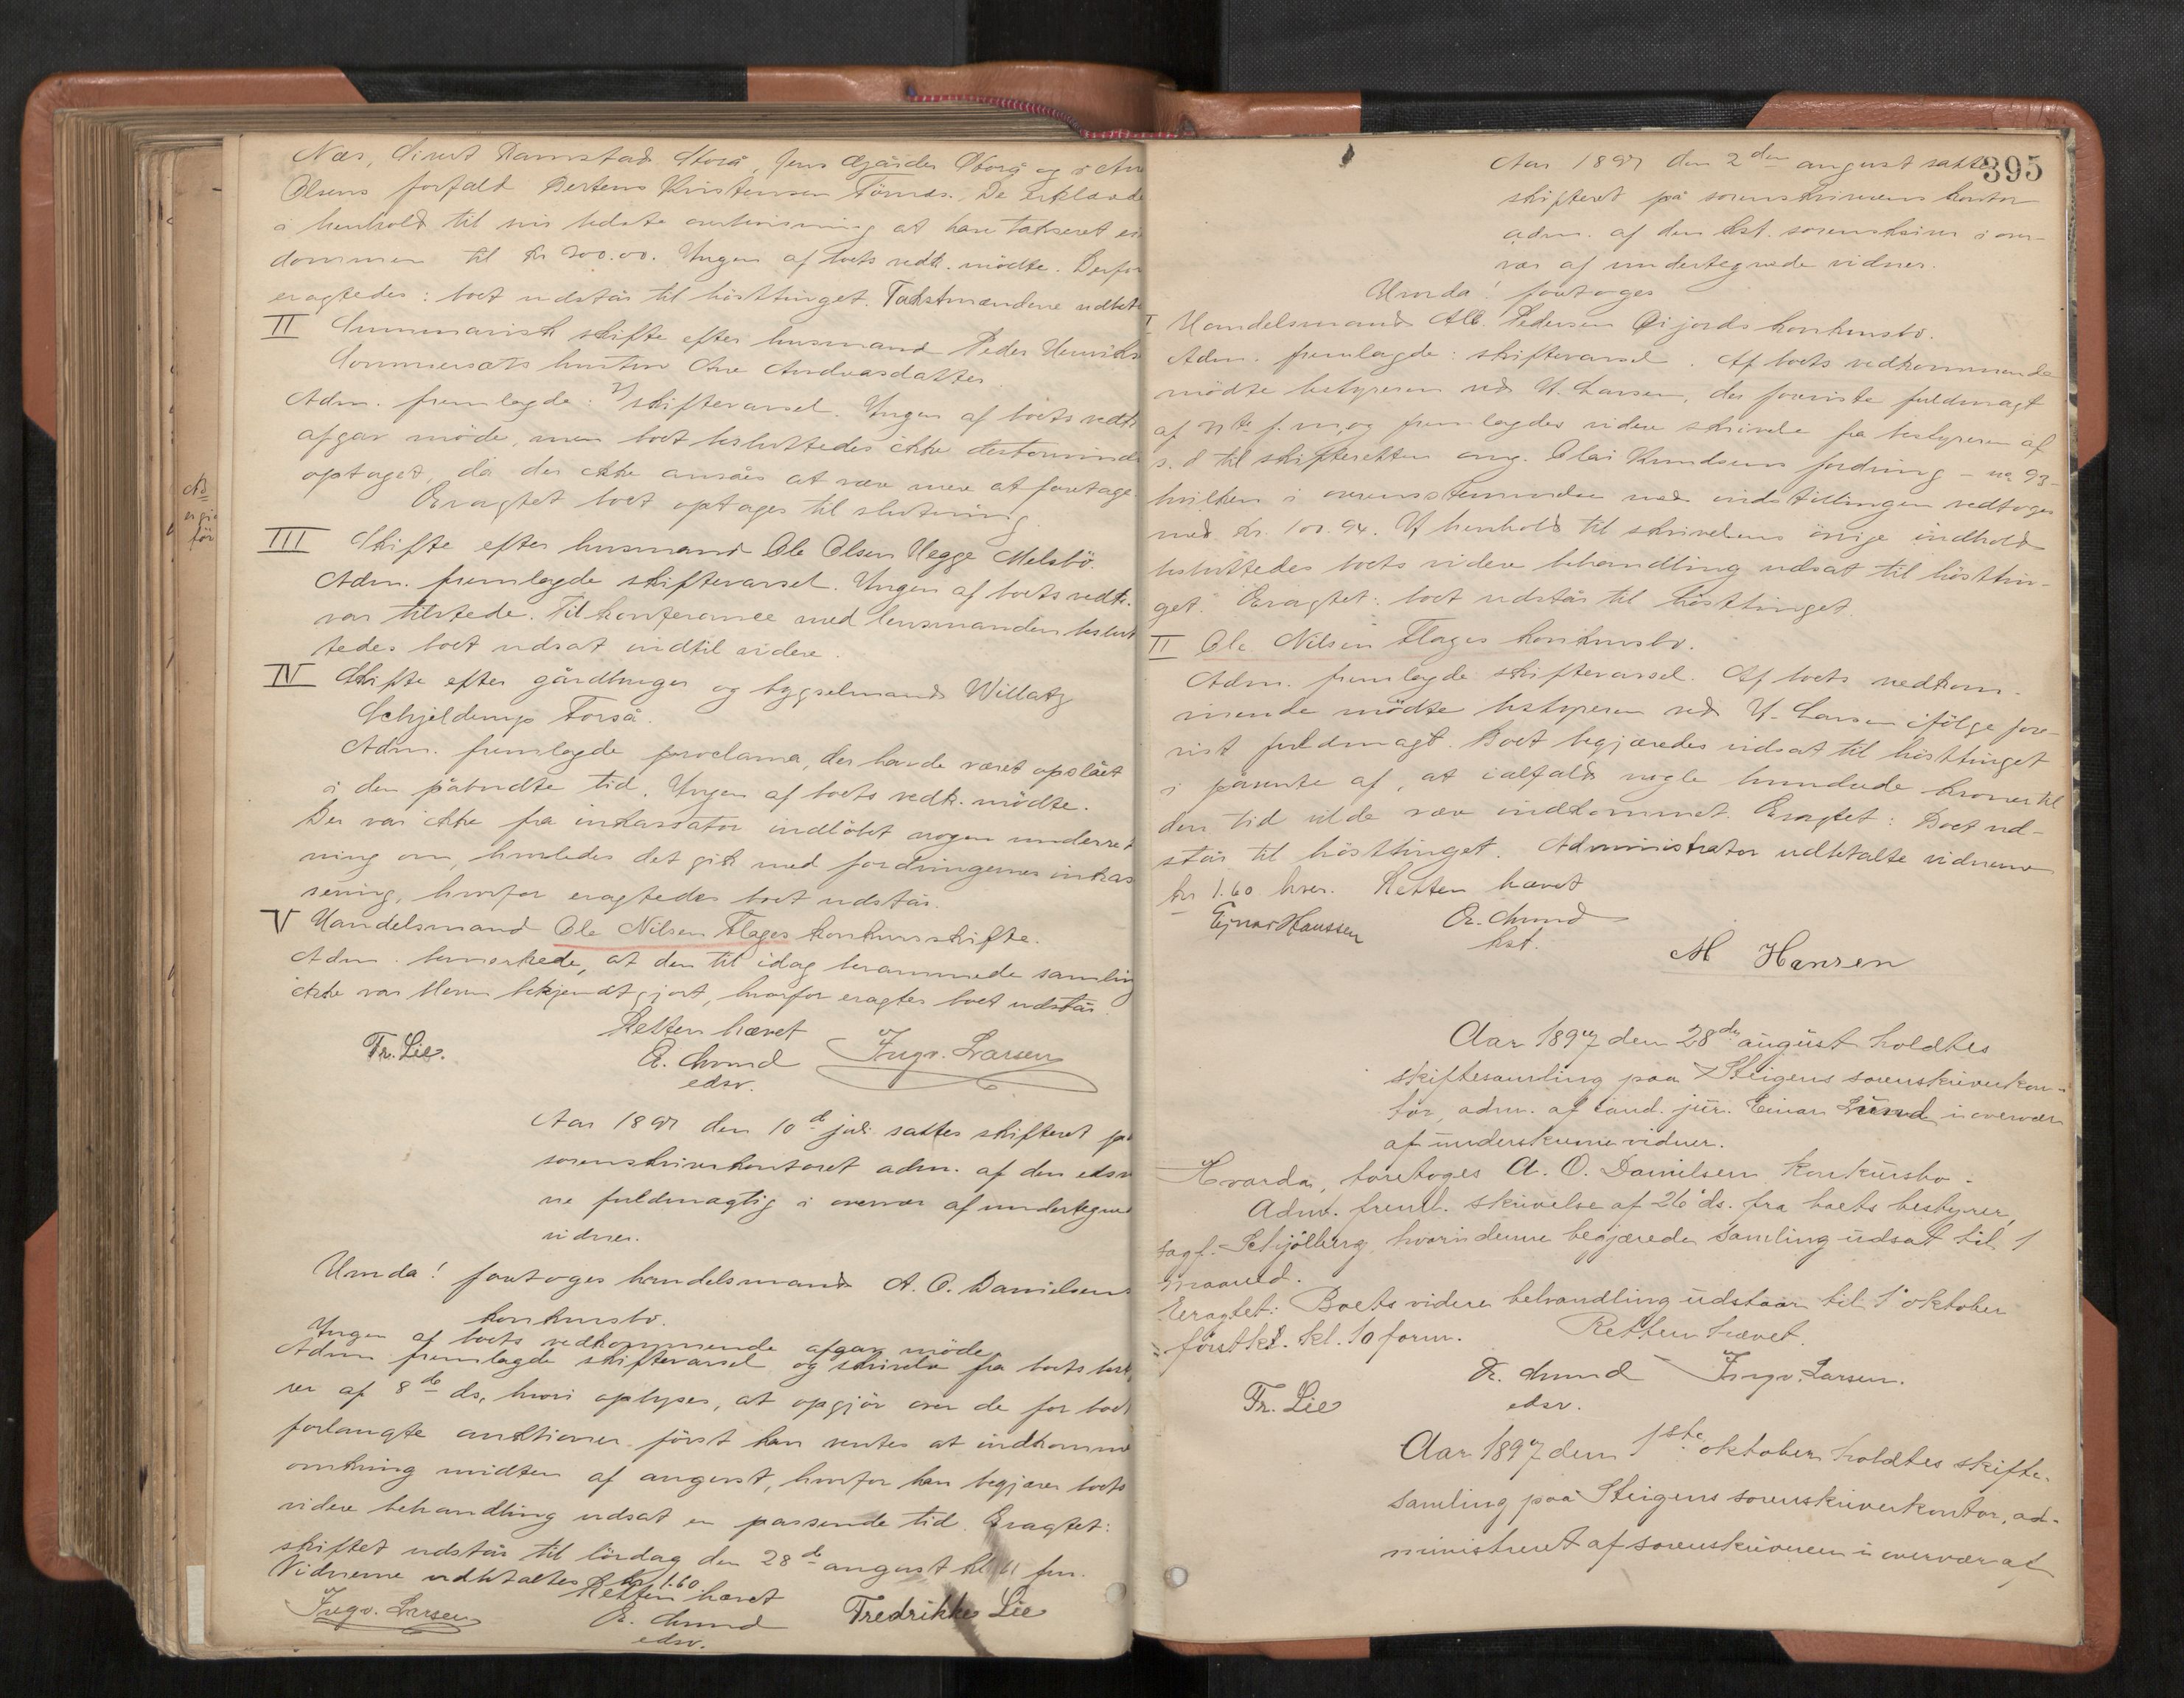 Nær, Sivert Ramstad Storå, Jens Ægåides Storå og i Are
Olsens forfald Bertens Kristensen Törnes. De erklærede
i henhold til sin sidste anvisning at have takseret ein
dommen til Kr 200.00. Ingen af boets vedk. mödte. Derfor
eragtedes: boet udstår til hösttinget. Takstmændene udbet
II Summarisk skifte efter husmand Peder Henriks
Sommersæts hustru Ane Andreasdatter.
Adm. fremlagde: skiftevarsel. Ingen af boets vedk
afgav möde, men boet besluttedes ikke destomind
optaget, då der ikke ansåes at være mere at foretage.
Eragtet boet optages til slutning
III Skifte efter husmand Ole Olsen Hegge Melsbö.
Adm. fremlagde skiftevarsel. Ingen af boets vedk.
var tilstede. Til konferance med lensmanden beslut
tedes boet udsat indtil videre.
IV Skifte efter gårdbruger og bygselmand Willatz
Schjelderup Forså.
Adm. fremlagde proclama, der havde været opslået
i den påbudte tid. Ingen af boets vedk. mödte.
Der var ikke fra inkassator indlöbet nogen underret
ning om, hvorledes det gik med fordringernes inkas
sering, hvorfor eragtedes boet udstår.
V Handelsmand Ole Nilsen Flages konkursskifte.
Adm. bemerkede, at den til idag berammede samling
ikke var bleven bekjendtgjort, hvorfor eragtes boet udstår.
Retten hævet
Fr. Lie. E. Lund Ingv. Larsen
edsv.
Aar 1897 den 10de juli sattes skifteret på
sorenskriverkontoret adm. af den edsv
ne fuldmægtig i overvær af undertegned
vidner.
Hvorda! foretoges handelsmand A. O. Danielsens
konkursbo.
Ingen af boets vedkommende afgav möde.
Adm fremlagde skiftevarsel og skrivelse fra boets best
rer af 8de ds, hvori oplyses, at opgjör over de for boet
forlangte auktioner först kan ventes at indkomme
omkring midten af august, hvorfor han begjærer boets
videre behandling udsat en passende tid. Eragtet:
skiftet udstår til lördag den 28de august kl 11 fm.
Vidnerne udbetaltes kr 1.60.
Retten hævet
Ingv. Larsen E. Lund Fredrikke Lie
edsv.
395
Aar 1897 den 2den august sattes
skifteret på sorenskriverens kontor
adm. af den kst. sorenskriver i over-
vær af undertegnede vidner.
Hvorda! foretoges
I Handelsmand Alb. Pedersen Öijords konkursbo.
Adm. fremlagde: skiftevarsel. Af boets vedkommende
mödte bestyreren ved H. Larsen, der foreviste fuldmagt
af f. m, og fremlagdes videre skrivelse fra bestyreren af
s. d til skifteretten ang. Olai Knudsens fordring – no 93 –
hvilken i overensstemmelse med indstillingen vedtoges
med Kr. 100.94. I henhold til skrivelsens övrige indhold
besluttedes boets videre behandling udsat til hösttin-
get. Eragtet: boet udstår til hösttinget.
II Ole Nilsen Flages konkursbo.
Adm. fremlagde skiftevarsel. Af boets vedkom-
mende mödte bestyreren ved H. Larsen ifölge fore-
vist fuldmagt. Boet begjæredes udsat til hösttinget
i påvente af, at ialfald nogle hundrede kroner til
den tid vilde være indkommet. Eragtet: Boet ud-
står til hösttinget. Administrator udbetalte vidnerne
kr 1.60 hver. Retten hævet
Ejnar Hanssen E. Lund
kst.
M Hansen
Aar 1897 den 28de august holdtes
skiftesamling paa Steigens sorenskriverkon-
tor, adm. af cand. jur. Einar Lund i overvær
af underskrevne vidner.
Hvorda, foretoges A. O. Danielsen konkursbo.
Adm. freml. skrivelse af 26 ds. fra boets bestyrer,
sagf. Schjölberg, hvori denne begjærede samling udsat til 1
maaned.
Eragtet: Boets videre behandling udstaar til 1 oktober
förstk. kl. 10 form. Retten hævet.
E. Lund Ingv. Larsen.
Fr. Lie edsv.
Aar 1897 den 1ste oktober holdtes skifte-
samling paa Steigens sorenskriverkontor, ad-
ministreret af sorenskriveren i overvær af